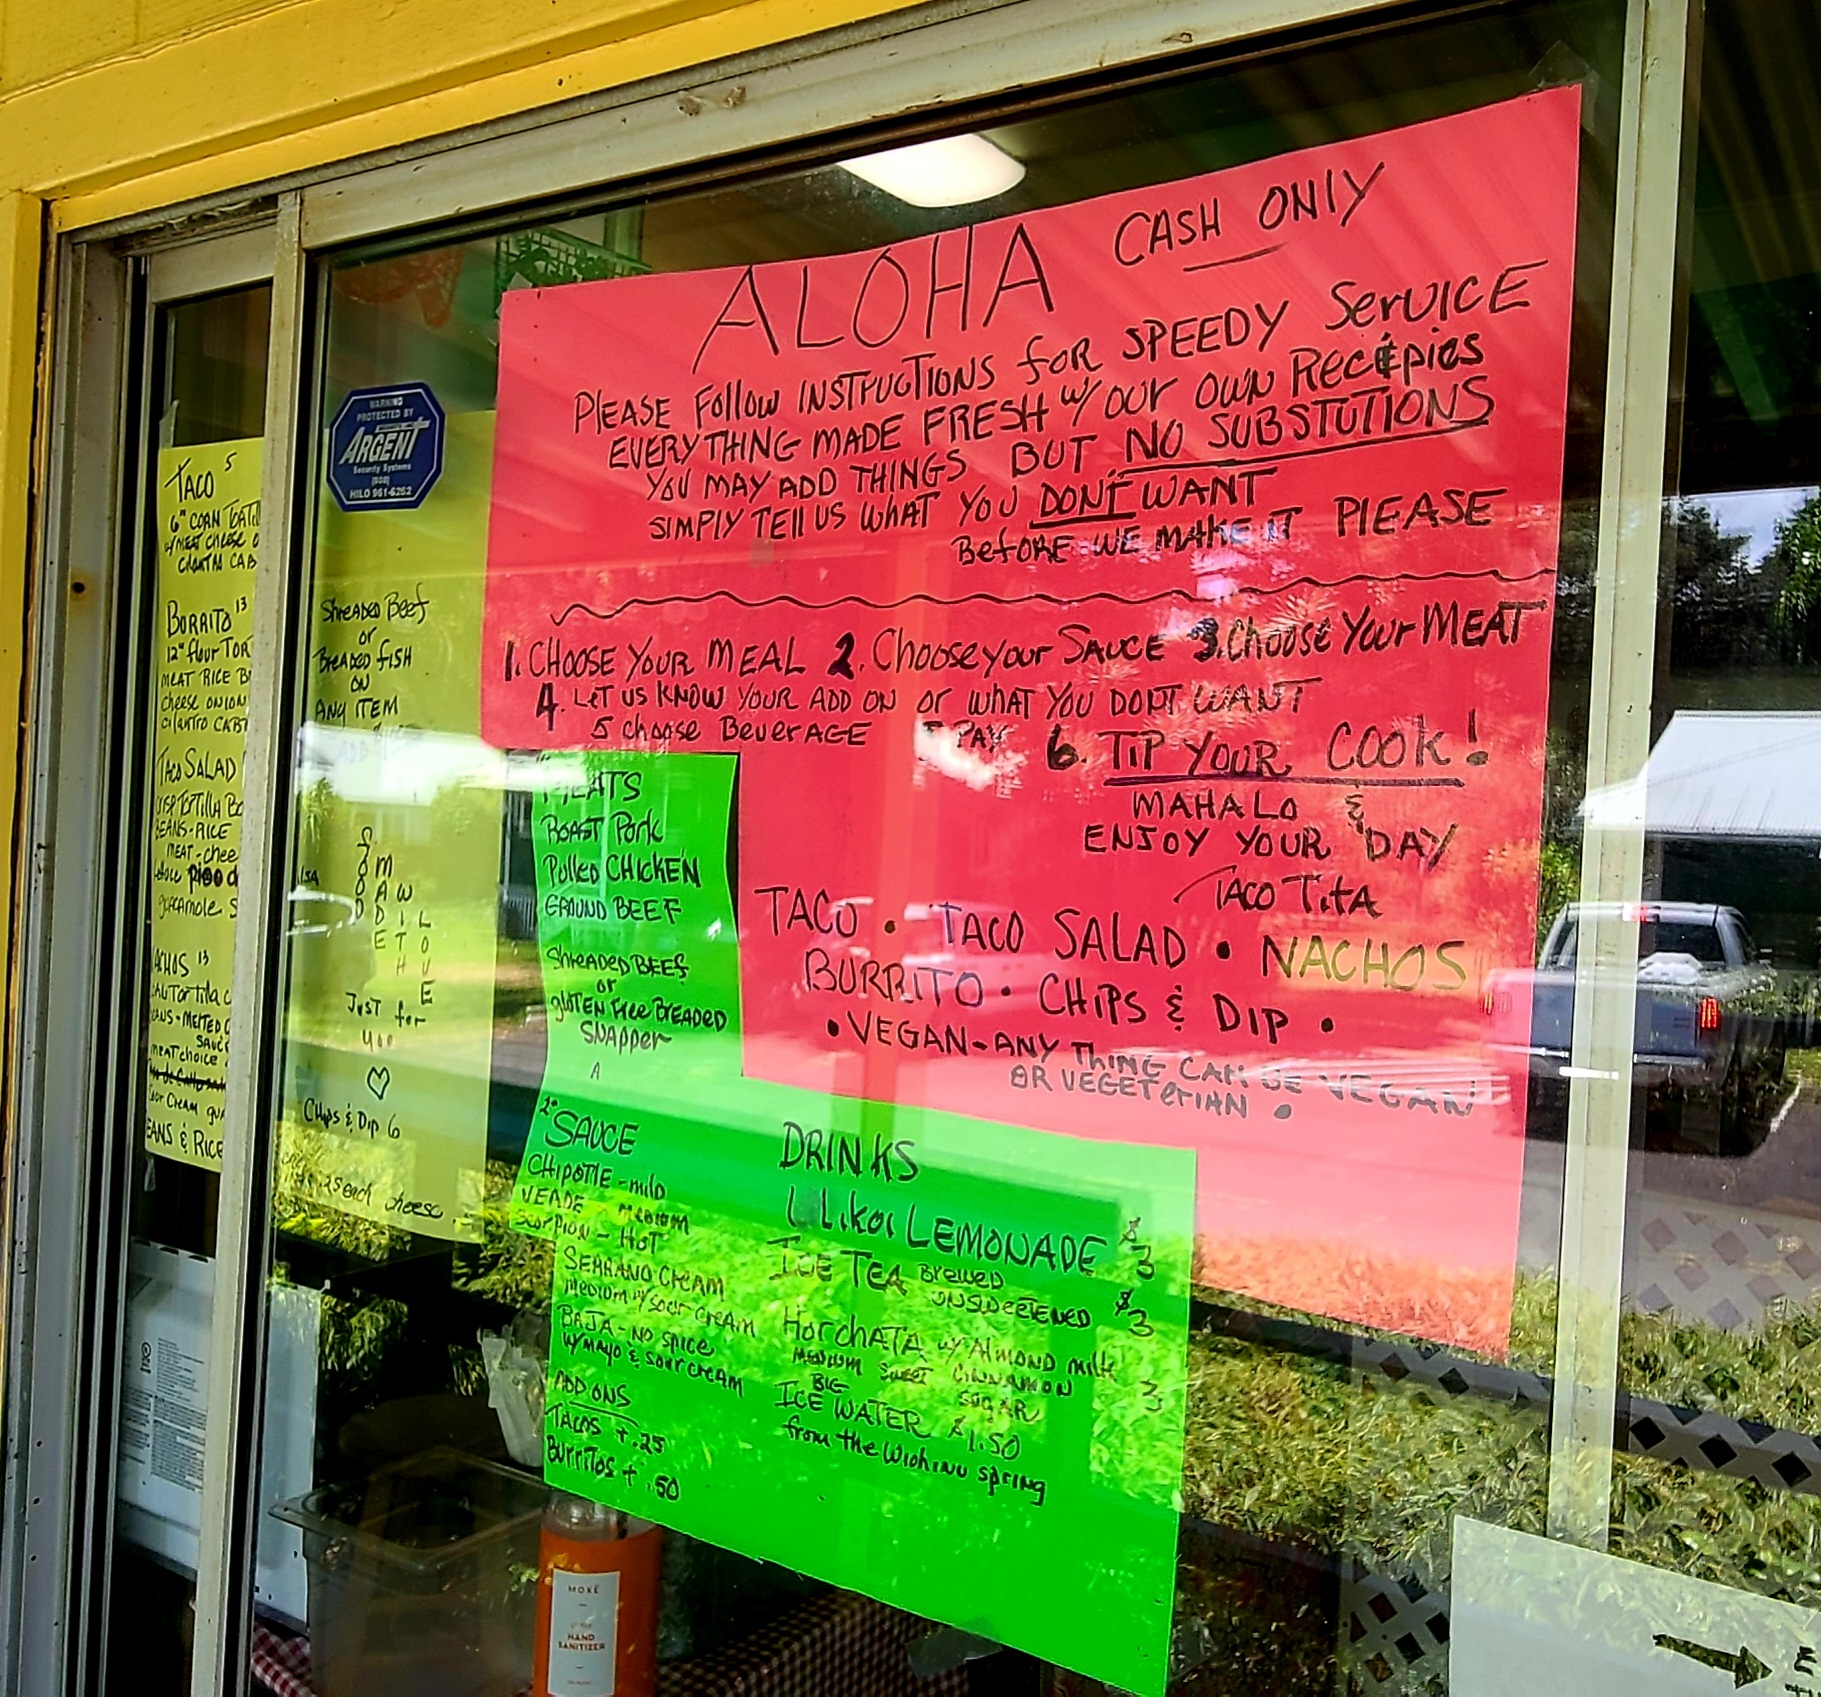 ALOHA CASH ONLY
PLEASE Follow INSTRUCTIONS for SPEEDY SerVICE
EVERYTHING MADE FRESH w/ our OWN Recepies
YOU MAY ADD THINGS BUT NO SUBSTUTIONS
SIMPLY TEll US WhAT YOU DONT WANT
BeFORE WE MAKE IT PlEASE
1. CHOOSE YOUR MEAL 2. Choose your SAUCE 3. Choose Your MEAT
4. LET US KNOW YOUR ADD ON or WhAT YOU DONT WANT
5 choose BeverAGE PAY 6. TIP YOUR COOK!
MAHALO &
ENJOY YOUR DAY
TACO TITA
TACO • TACO SALAD • NACHOS
BURRITO • CHIPS & DIP •
• VEGAN-ANY THING CAN BE VEGAN
OR VEGETerIAN •
MEATS
ROAST Pork
Pulled CHICKEN
GROUND BEEF
ShreADED BEEF
or
gluTEN free BREADED
SNApper
2
SAUCE
CHIPOTLE - mild
VERDE - MEDIUM
Scorpion - HOT
SERRANO CREAM
MEDIUM w/ sour cream
BAJA - NO spice
w/ MAYO & sour cream
ADD ONS
TACOS + .25
BurriTos + .50
DRINKS
LILIkoi LEMONADE $3
ICE TEA Brewed
UNSWEETENED $3
HorchATA w/ Almond milk
MEDIUM Sweet CINNAMON
SUGAR 3
BIG
ICE WATER $1.50
from the
spring
TACO 5
6" CORN
w/ MEAT cheese
CILANTRO CAB
BURRITO 13
12" flour TOR
MEAT RICE
cheese ONION
cilantro CAB
TACO SALAD
BEANS - RICE
MEAT - chee
ACHOS 13
MELTED
meat choice
our Cream
EANS & RICE
ShreADED Beef
or
BreADED fiSH
ON
ANY ITEM
FOOD
MADE
WITH
LOVE
JUST for
you
Chips & Dip 6
.25 each cheese
WARNING
PROTECTED BY
ARGENT
Security Systems
(808)
HILO 961-6262
MOXĒ
HAND
SANITIZER